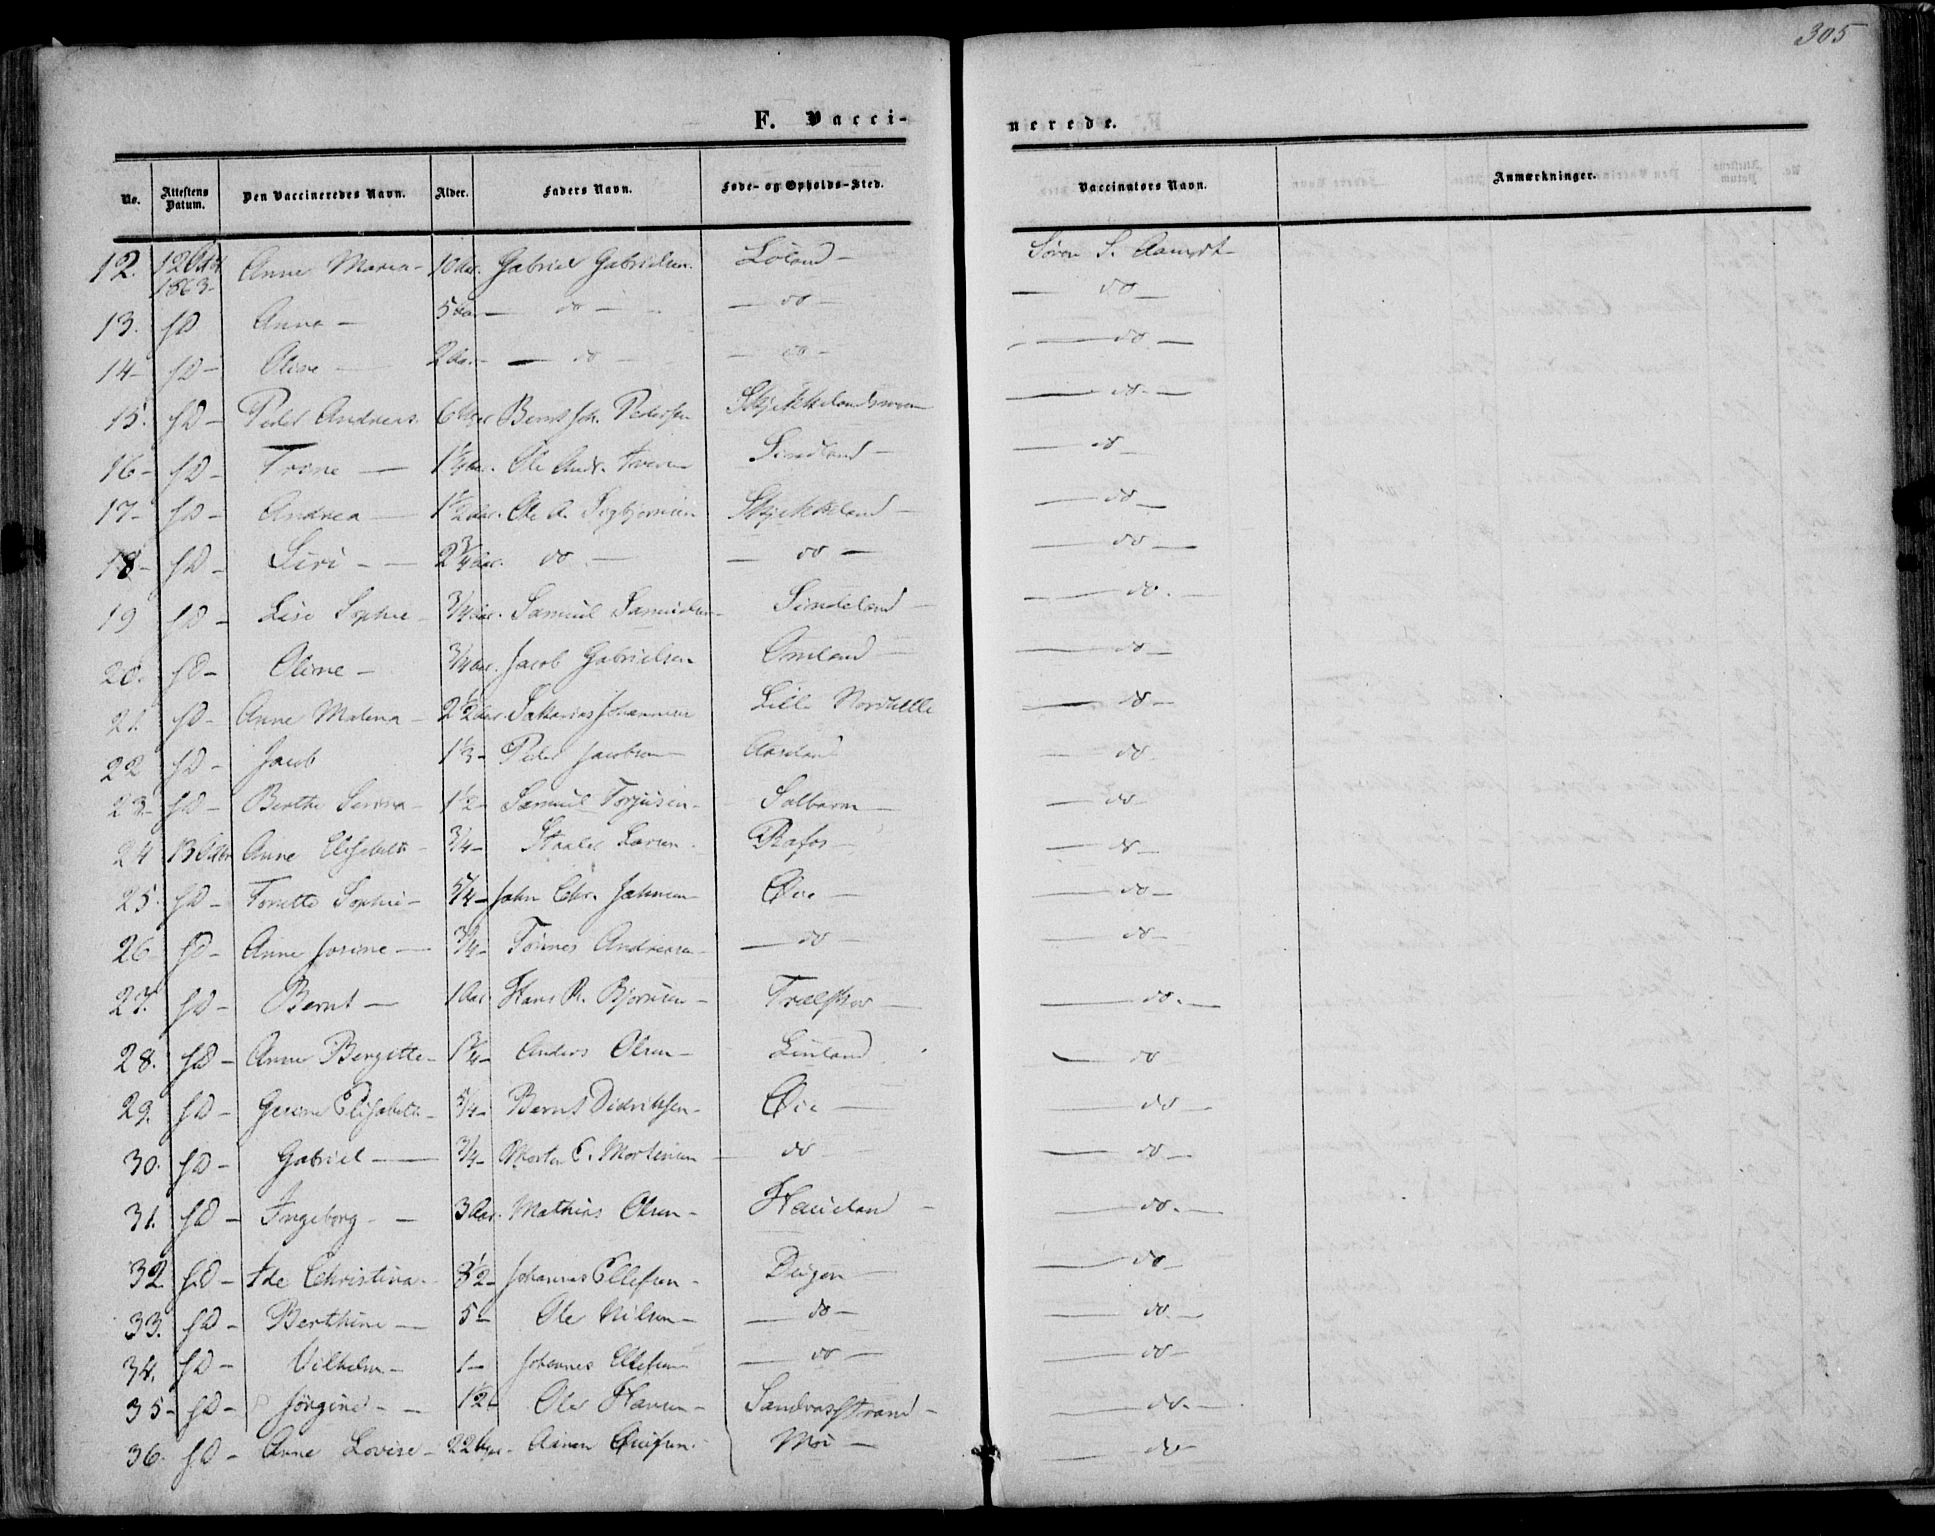 305
F. Vacci-
nerede.
No. Attestens Datum. Den Vaccineredes Navn. Alder. Faders Navn. Føde- og Opholds-Sted. Vaccinators Navn. Anmærkninger.
12. 12 Octbr 1863 Anne Maria - 10 Aar. Gabriel Gabrielsen. Løland - Søren S.
13. s.D Anna - 5 Aar - do - - do - - do -
14 - s.D - Oline - 2 Aar - - do - - do - - do -
15. s.D - Peder Andreas. 6 Bernt Joh. Pedersen - do -
16 - s.D - Trine - Aar. Ole Andr. Sindland - - do -
17 - s.D - Andrea - 1 1/2 Aar. Ole A. Sigbjørnsen Skjekkeland - - do -
18 - s.D - Siri - - 2 3/4 Aar. do - - do - - do -
19 s.D - Lise Sophie - 3/4 Aar. Samuel Samuelsen - Sindeland - - do -
20. s.D - Oline - 3/4 Aar. Jacob Gabrielsen Omland - - do -
21. s.D - Anne Malena - 2 1/2 Aar. Sakarias Johannesen Lille - do -
22 s.D - Jacob 1 1/3 - Peder Jacobsen - - do -
23 - s.D - Berthe Serina - 1 1/2 - Samuel Torjusen - - do -
24 13 Octbr Anne Elisabeth - 3/4 - Staale Larsen. Rafos - - do -
25. s.D - Torette Sophie - 5/4 - John Chr. Johnsen - Øie - - do -
26 s.D - Anne Josine - 3/4 - Tønnes Andreasen - - do - - do -
27. s.D - Bernt - 1 Aar. Hans R. Bjørnsen - - do -
28. s.D - Anne Bergitte - 1 3/4 - Anders Olsen - - do
29. s.D - Gesine Elisabeth - 5/4 - Bernt Didriksen - Øie - - do -
30. s.D - Gabriel - 3/4 - Morten E. Mortensen - do - - do -
31. s.D - Ingeborg - - 3 Aar. Mathias Olsen - Haueland - - do -
32 s.D - Ide Christina - 3 1/2 - Johannes Ellefsen - - do -
33. s.D - Berthine - 5 - Ole Nilsen - - do - - do -
34. s.D - Vilhelm - 1 - Johannes Ellefsen - do - - do -
35 - s.D - Jørgine - - 1 1/2 - Ole Hansen - - do -
36. s.D - Anne Lovise - 22 Moi - - do -